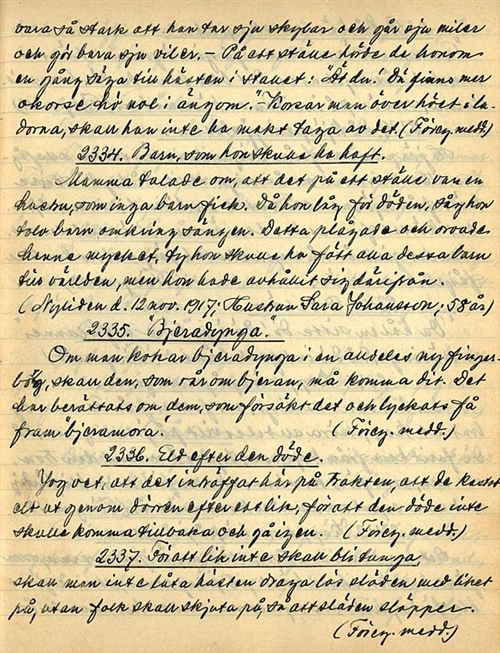 vara så stark att han tar sju skylar och går sju miler
och gör bara sju viler. – På ett ställe hörde de honom
en gång säga till hästen i stallet: "Ät du! Då finns mer
okorse hö nol i ängom." – Korsar man över höet i la-
dorna, skall han inte ha makt taga av det. (Föreg. medd.)
2334. Barn, som hon skulle ha haft.
Mamma talade om, att det på ett ställe var en
hustru, som inga barn fick. Då hon låg för döden, såg hon
tolv barn omkring sängen. Detta plågade och oroade
henne mycket, ty hon skulle ha fött alla dessa barn
till världen, men hon hade avhållit sig därifrån.
(Nyliden d. 12 nov. 1917; Hustrun Sara Johansson; 58 år)
2335. "Bjeradynga."
Om man kokar bjeradynga i en alldeles ny finger-
borg, skall den, som rår om bjeran, må komma dit. Det
har berättats om dem, som försökt det och lyckats få
fram bjeramora. (Föreg. medd.)
2336. Eld efter den döde.
Jag vet, att det inträffat här på trakten, att de kastat
eld ut genom dörren efter ett lik, för att den döde inte
skulle komma tillbaka och gå igen. (Föreg. medd.)
2337. För att lik inte skall bli tunga,
skall man inte låta hästen draga lös släden med liket
på, utan folk skall skjuta på, så att släden släpper.
(Föreg. medd.)